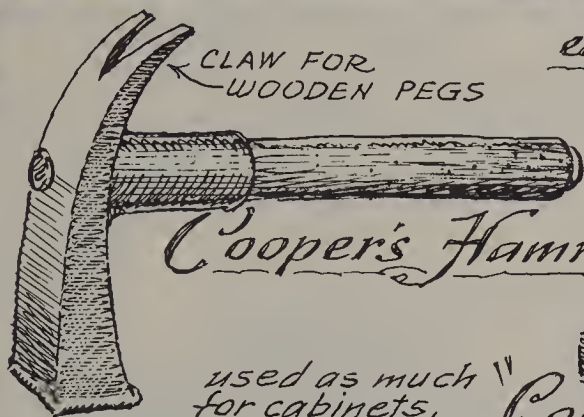 CLAW FOR
WOODEN PEGS
Cooper's Hamm
used as much "
for cabinets,